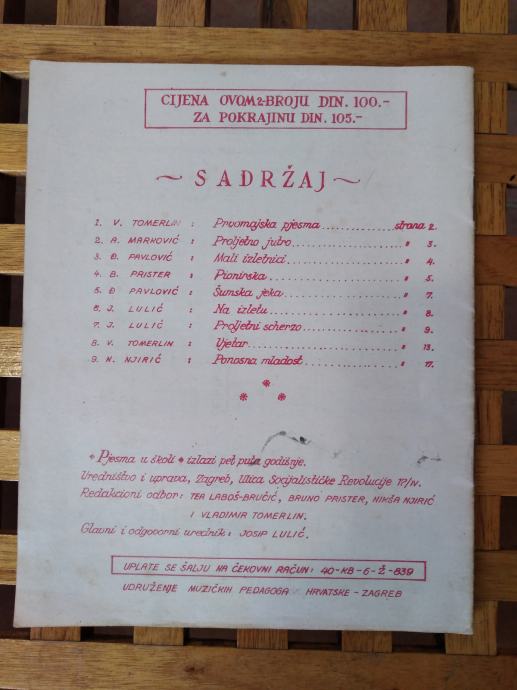 CIJENA OVOM 2-BROJU DIN. 100.-
ZA POKRAJINU DIN. 105.-
~ SADRŽAJ ~
1. V. TOMERLIN : Prvomajska pjesma .......... strana 2.
2. A. MARKOVIĆ : Proljetno jutro .......... " 3.
3. Đ. PAVLOVIĆ : Mali izletnici .......... " 4.
4. B. PRISTER : Pionirska .......... " 5.
5. Đ PAVLOVIĆ : Šumska jeka .......... " 7.
6. J. LULIĆ : Na izletu .......... " 8.
7. J. LULIĆ : Proljetni scherzo .......... " 9.
8. V. TOMERLIN : Vjetar .......... " 13.
9. N. NJIRIĆ : Ponosna mladost .......... " 17.
* * *
"Pjesma u školi" izlazi pet puta godišnje.
Uredništvo i uprava, Zagreb, Ulica Socijalističke Revolucije 17/IV.
Redakcioni odbor: TEA LABOŠ-BRUČIĆ, BRUNO PRISTER, NIKŠA NJIRIĆ
I VLADIMIR TOMERLIN.
Glavni i odgovorni urednik: JOSIP LULIĆ.
UPLATE SE ŠALJU NA ČEKOVNI RAČUN: 40-KB-6-Ž-839
UDRUŽENJE MUZIČKIH PEDAGOGA HRVATSKE - ZAGREB